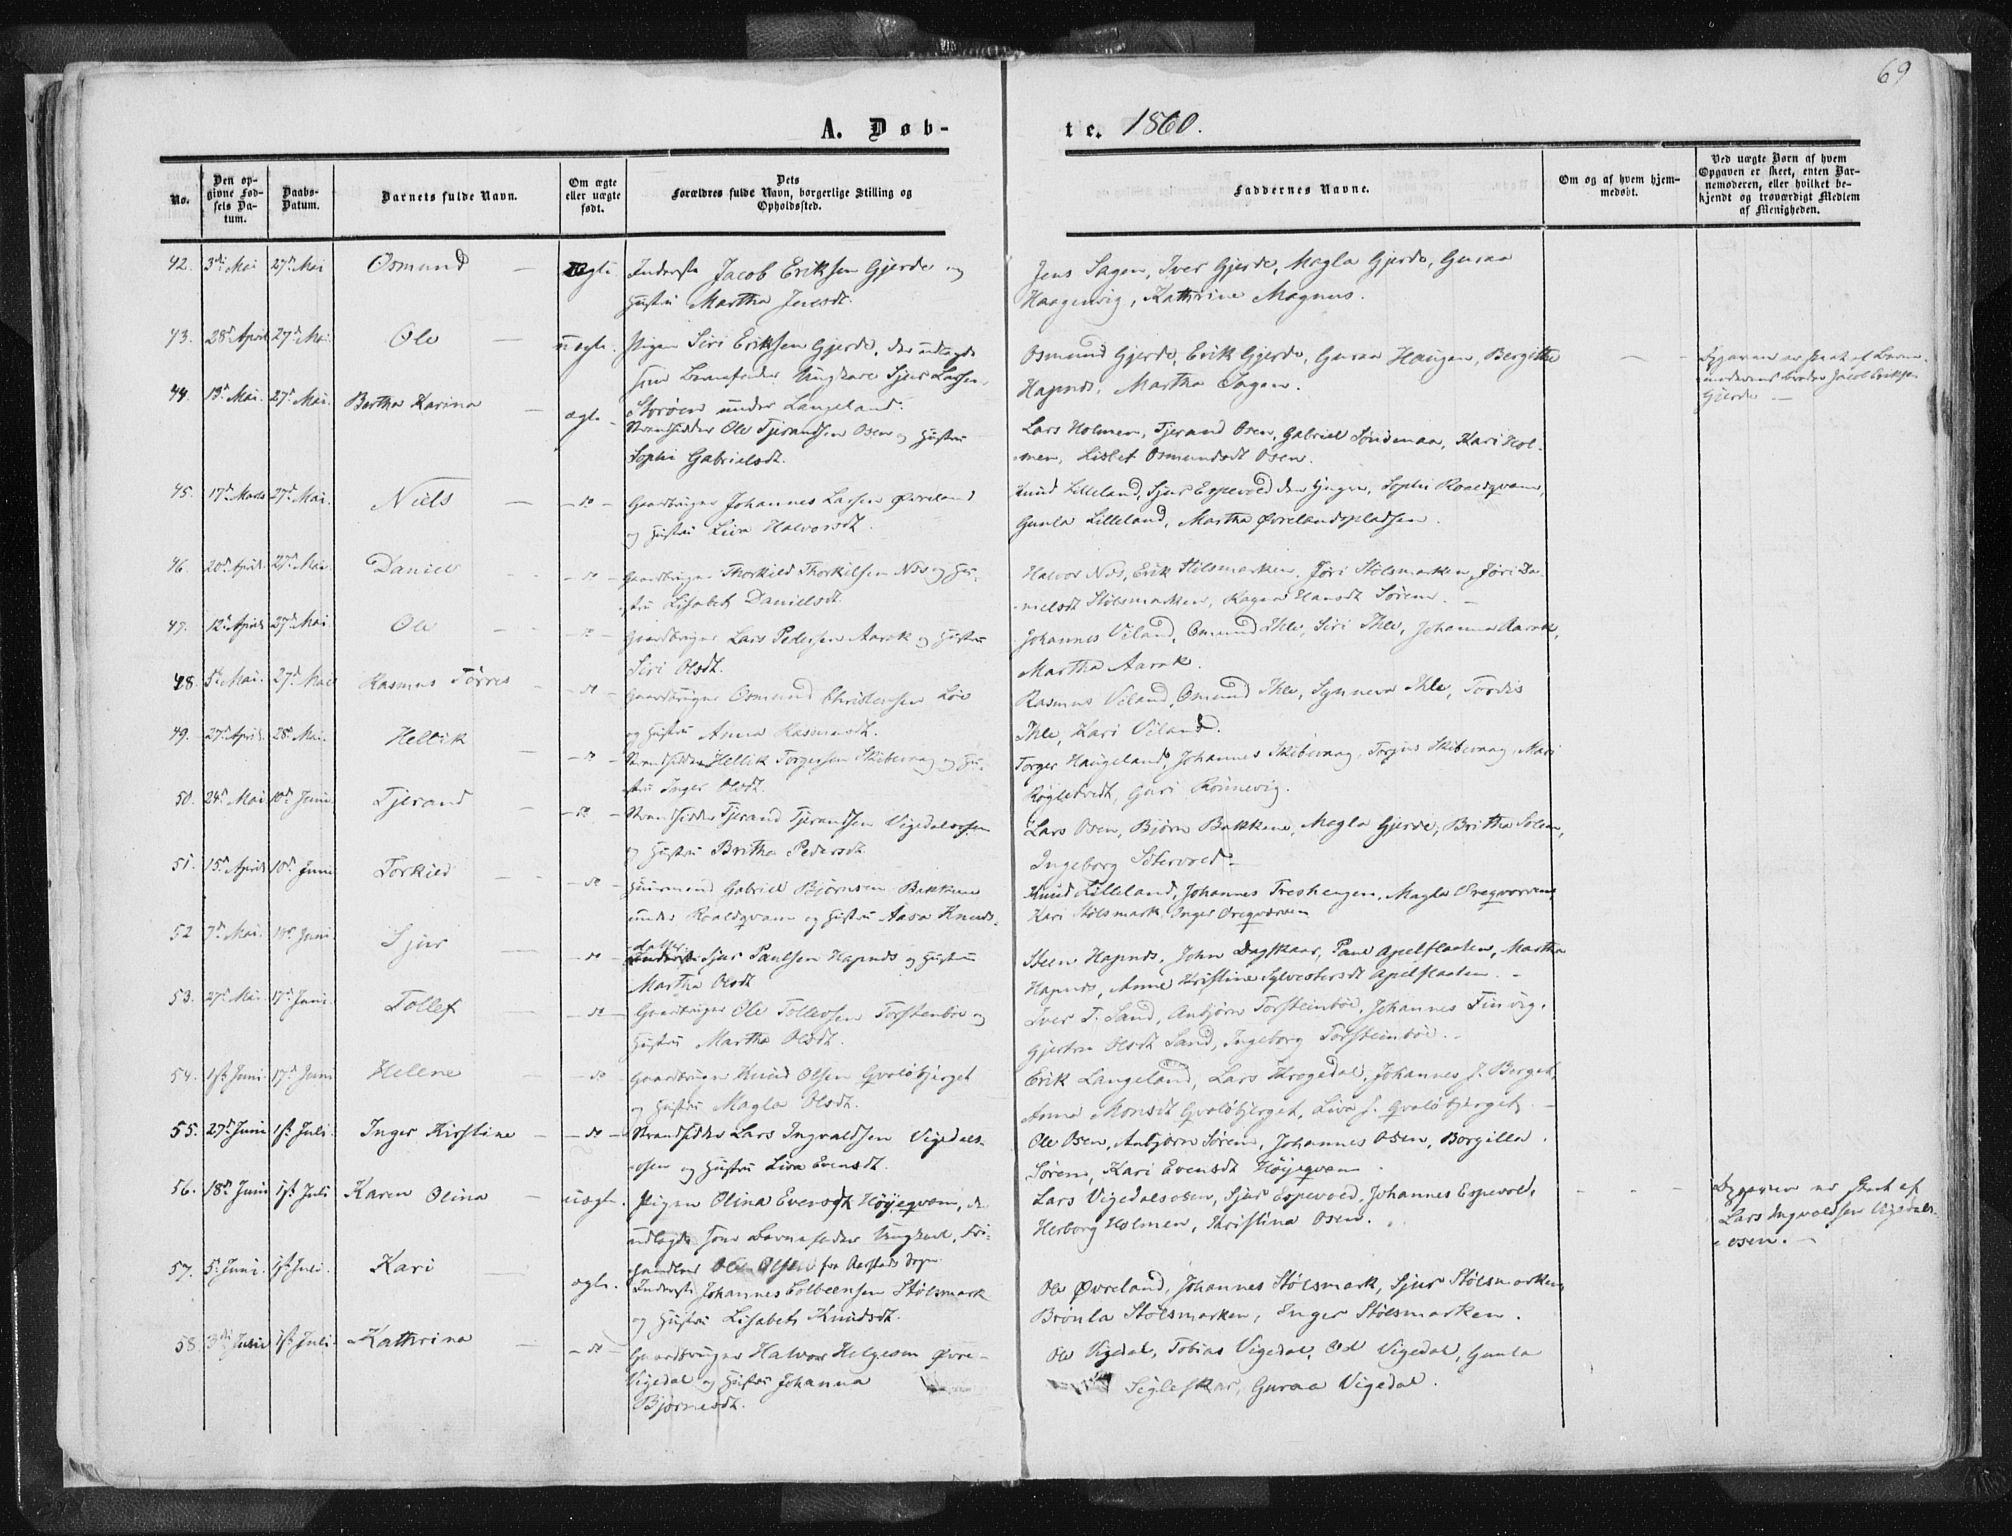 69
A. Døb-
te. 1860.
No.
Den op-
givne Fød-
sels Da-
tum.
Daabs-
Datum.
Barnets fulde Navn.
Om ægte
eller uægte
født.
Dets
Forældres fulde Navn, borgerlige Stilling og
Opholdssted.
Faddernes Navne.
Om og af hvem hjem-
medøbt.
Ved uægte Børn af hvem
Opgaven er skeet, enten Bar-
nemoderen, eller hvilket be-
kjendt og troværdigt Medlem
af Menigheden.
42. 3die Mai 27d Mai Osmund — ægte Inderste Jacob Eriksen Gjerde og
Hustru Martha Jensdt.
Jens Sagen, Iver Gjerde, Magla Gjerde, Guraa
Haagenvig, Kathrine Magnus.
43. 28d April 27d Mai Ole — uægte. Pigen Siri Eriksen Gjerde, der udlagde
som Barnefader Ungkarl Sjur Larsen
Storøen under Langeland.
Osmund Gjerde, Erik Gjerde, Guraa Haugen, Bergitha
Hapnes, Martha Sagen.
Opgaven er skeet af Barne-
moderens broder Jacob Eriksen
Gjerde —
44. 13d Mai. 27d Mai. Bertha Karina — ægte — Strandsidder Ole Tjerandsen Osen og Hustru
Sophi Gabrielsdt.
Lars Holmen, Tjerand Osen, Gabriel Søndenaa, Kari Hol-
men, Lisbet Osmundsdt Osen.
45. 17d Marts 27d Mai. Niels — do — Gaardbruger Johannes Larsen Øvreland
og Hustru Liva Halvorsdt.
Knud Lilleland, Sjur Espevold den yngre, Sophi Roaldqvam,
Gunla Lilleland, Martha Øvrelandspladsen.
46. 20d April. 27d Mai Daniel — do — Gaardbruger Thorkild Thorkilsen Næs og Hu-
stru Lisabet Danielsdt.
Halvor Næs, Erik Stølsmarken, Jøri Stølsmarken, Jøri Da-
nielsdt Stølsmarken, Ragna Hansdt Sørem. —
47. 12d April 27d Mai Ole — do — Gaardbruger Lars Pedersen Aarak og Hustru
Siri Olsdt.
Johannes Viland, Omund Ihle, Siri Ihle, Johanna Aarak,
Martha Aarak.
48. 5te Mai. 27d Mai Rasmus Tørres — do — Gaardbruger Osmund Christensen Løe
og Hustru Anna Rasmusdt.
Rasmus Viland, Omund Ihle, Synneva Ihle, Tordis
Ihle, Kari Viland.
49. 27d April. 28d Mai. Hellik — do — Strandsidder Hellik Torgersen Skibevaag og Hu-
stru Inger Olsdt.
Torger Haugeland, Johannes Skibevaag, Torjus Skibevaag, Mari
Røgletvedt, Guri Rønnevig.
50. 24d Mai 10d Juni Tjerand — do — Strandsidder Tjerand Tjerandsen Vigedalsosen
og Hustru Britha Pedersdt.
Lars Osen, Bjørn Bakken, Magla Gjerde, Britha Solem,
Ingeborg Sætervold. —
51. 15d April 10d Juni Torkild — do — Huusmand Gabriel Bjørnsen Bakken
under Roaldqvam og Hustru Aasa Knuds-
datter
Knud Lilleland, Johannes Treshengen, Magla Øreqværnen,
Kari Stølsmark, Inger Øreqværnen
52 7d Mai. 10d Juni Sjur — do — Inderste Sjur Paulsen Hapnes og Hustru
Martha Olsdt
Steen Hapnes, John Dagskaar, Paul Apelflaaten, Martha
Hapnes, Anne Kristine Sylvestersdt Apelflaaten. —
53. 27d Mai. 17d Juni. Tollef — do — Gaardbruger Ole Tollevsen Torstenbøe og
Hustru Martha Olsdt.
Iver T. Sand, Anbjørn Torsteinbøe, Johannes Finvig,
Gjertru Olsdt Sand, Ingeborg Torsteinbøe. —
54. 1st Juni. 17d Juni Helene — do — Gaardbruger Knud Olsen Qvaløbjerget
og Hustru Magla Olsdt.
Erik Langeland, Lars Krogedal, Johannes J. Berget,
Anna Monsdt Qvaløbjerget, Liva J. Qvaløbjerget. —
55. 27d Juni 1st Juli. Inger Kirstine — do — Strandsidder Lars Ingvaldsen Vigedals-
osen og Hustru Liva Evensdt.
Ole Osen, Anbjørn Sørem, Johannes Osen, Borgilla
Sørem, Kari Evensdt Høyeqvam.
56. 18d Juni 1st Juli Karen Olina — uægte. Pigen Olina Evensdt Høyeqvam, der
udlagde som Barnefader Ungkarl, Fri-
handler Ole Olsen fra Aarstads Sogn
Lars Vigedalsosen, Sjur Espevold, Johannes Espevold,
Herborg Holmen, Kristina Osen.
Opgaven er skeet af
Lars Ingvaldsen Vigedals-
osen. —
57. 5te Juni. 1st Juli. Kari — ægte. Inderste Johannes Colbeensen Stølsmark
og Hustru Lisabet Knudsdt.
Ole Øvreland, Johannes Stølsmark, Sjur Stølsmarken,
Brønla Stølsmarken, Inger Stølsmarken.
58 3die Juni 1st Juli. Kathrina — do — Gaardbruger Halvor Helgesen Øvre-
Vigedal og Hustru Johanna
Bjørnesdt.
Ole Vigedal, Tobias Vigedal, Od Vigedal, Gunla
Segleskar, Guraa Vigedal.